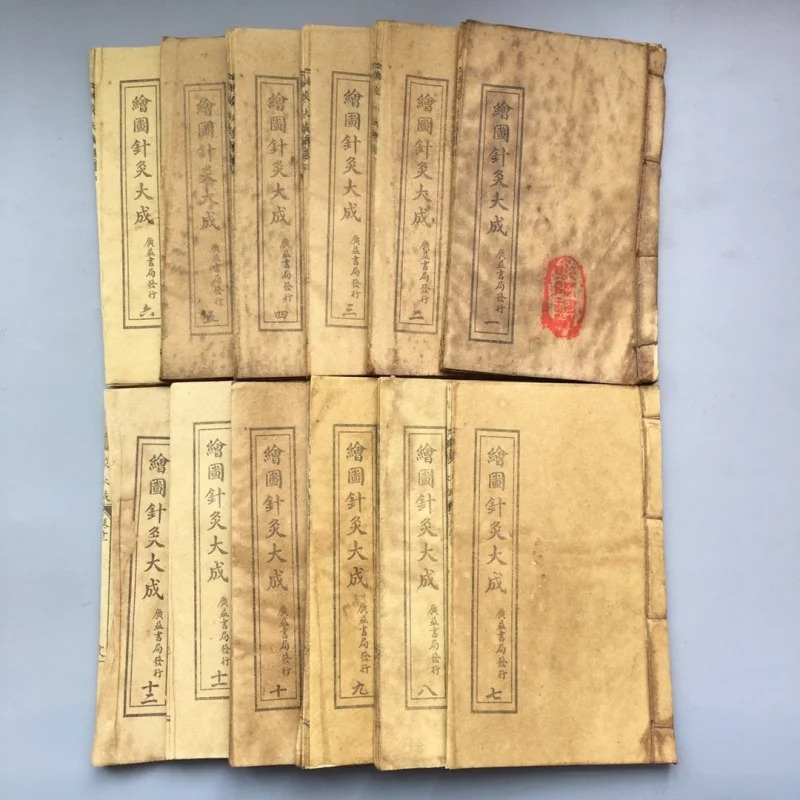 繪圖針灸大成
廣益書局發行
一
繪圖針灸大成
廣益書局發行
二
繪圖針灸大成
廣益書局發行
三
繪圖針灸大成
廣益書局發行
四
繪圖針灸大成
廣益書局發行
五
繪圖針灸大成
廣益書局發行
六
繪圖針灸大成
廣益書局發行
七
繪圖針灸大成
廣益書局發行
八
繪圖針灸大成
廣益書局發行
九
繪圖針灸大成
廣益書局發行
十
繪圖針灸大成
廣益書局發行
十一
繪圖針灸大成
廣益書局發行
十二